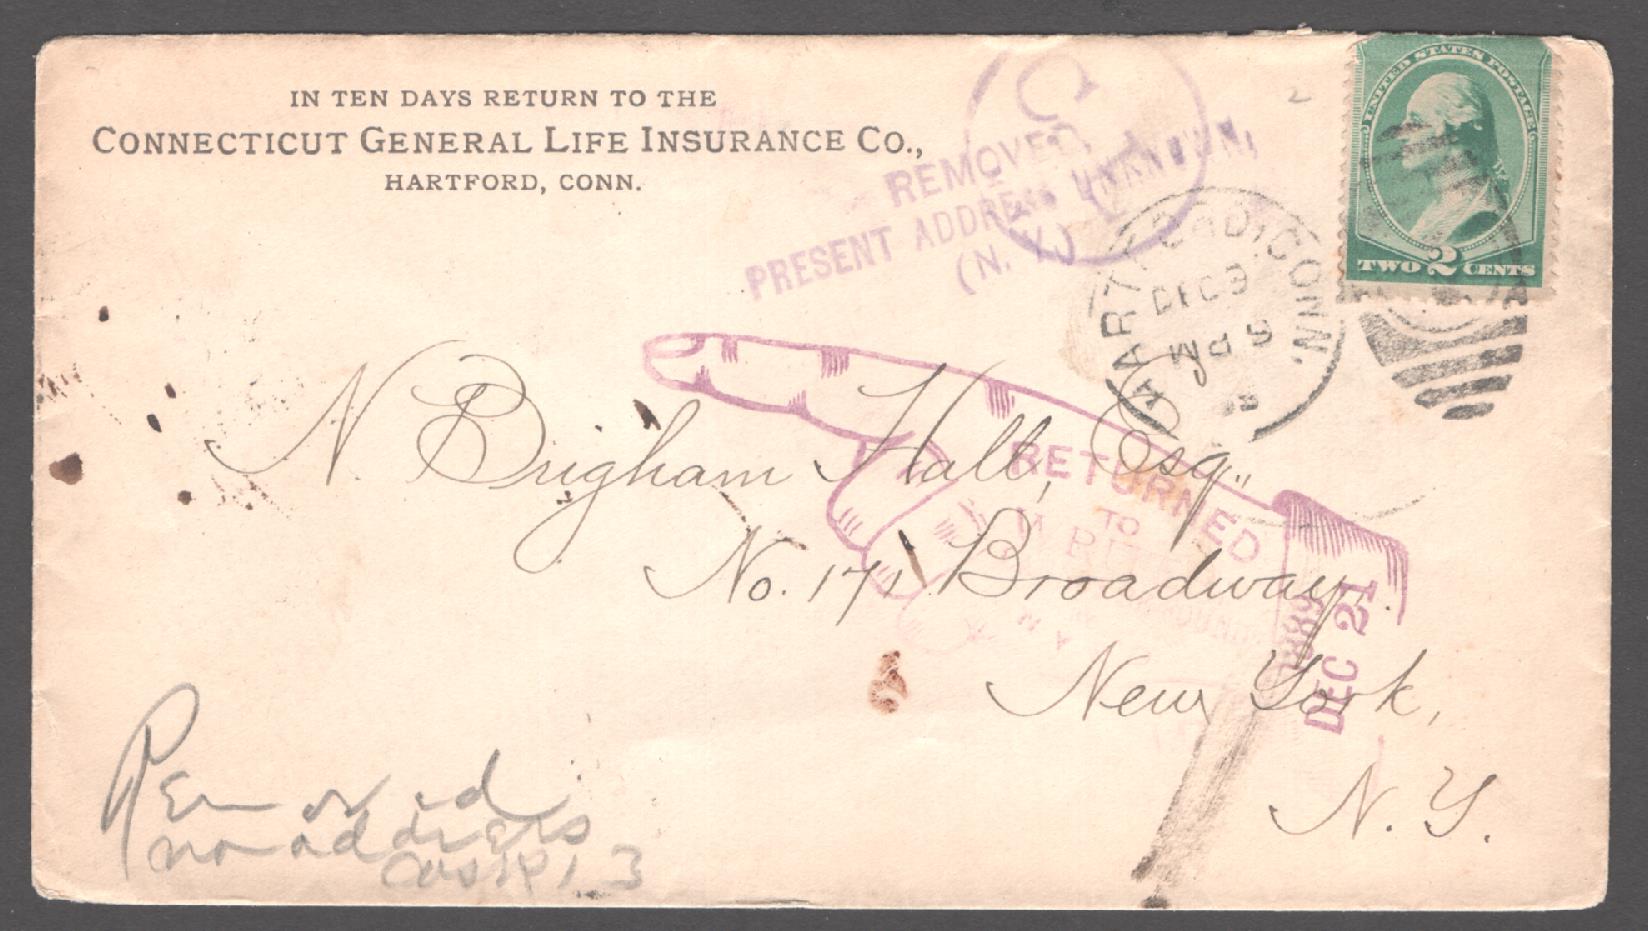 IN TEN DAYS RETURN TO THE
CONNECTICUT GENERAL LIFE INSURANCE CO.,
HARTFORD, CONN.
UNITED STATES POSTAGE
TWO 2 CENTS
C
REMOVED
PRESENT ADDRESS UNKNOWN,
(N. Y.)
HARTFORD, CONN.
DEC 9
N Brigham Hall, Esq.,
No. 171 Broadway,
New York,
N. Y.
RETURNED
TO
1889
DEC 21
Removed
no address
3